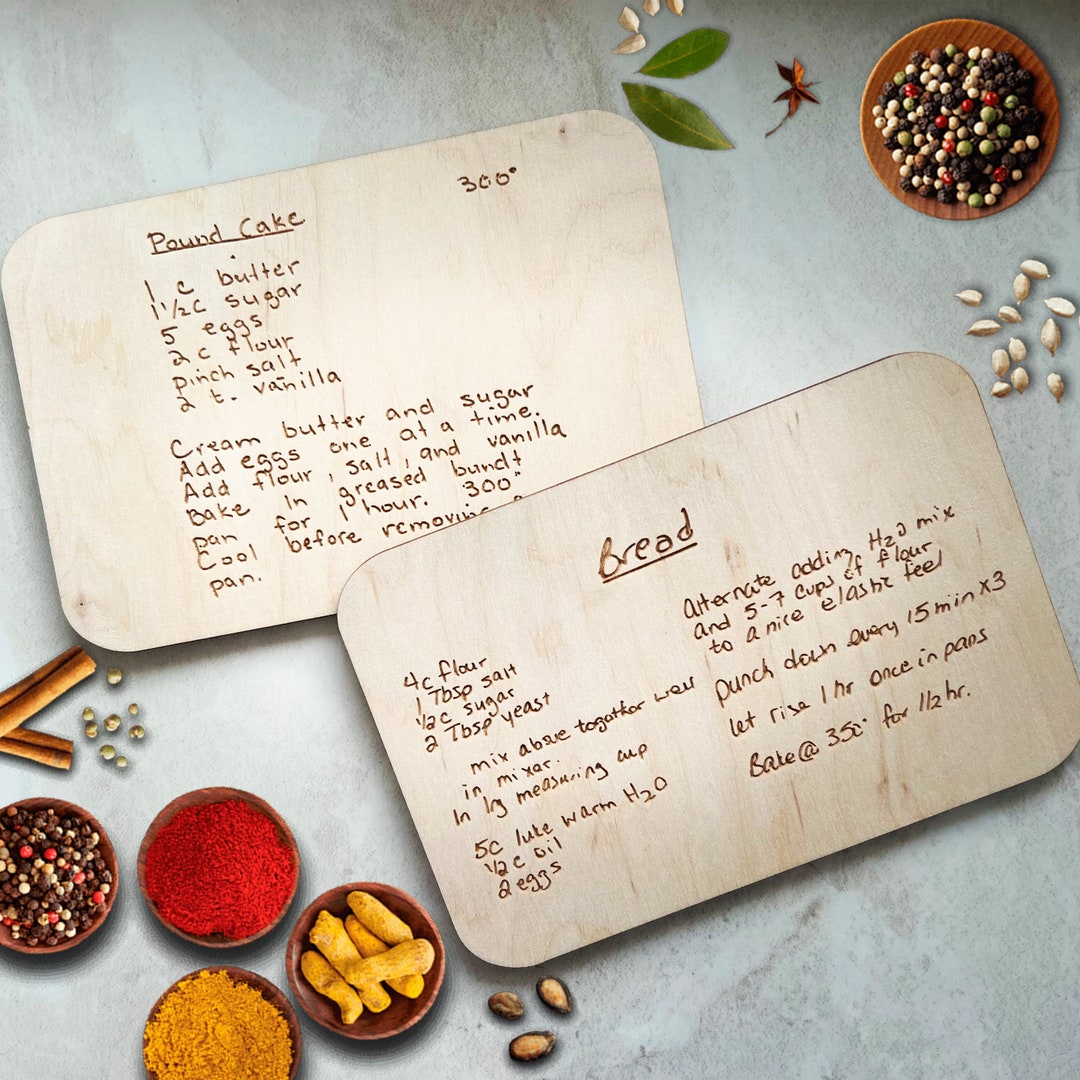 300°
Pound Cake
1 c butter
1 1/2c sugar
5 eggs
2 c flour
pinch salt
2 t. vanilla
Cream butter and sugar
Add eggs one at a time.
Add flour, salt, and vanilla
Bake in greased bundt
pan for 1 hour. 300°
Cool before removing
pan.
Bread
4c flour
1 Tbsp salt
1/2c sugar
2 Tbsp yeast
mix above together well
in mixer.
In lrg measuring cup
5c luke warm H2O
1/2 c oil
2 eggs
Alternate adding H2O mix
and 5-7 cups of flour
to a nice elastic feel
Punch down every 15 min x3
let rise 1 hr once in pans
Bake @ 350° for 1/2 hr.